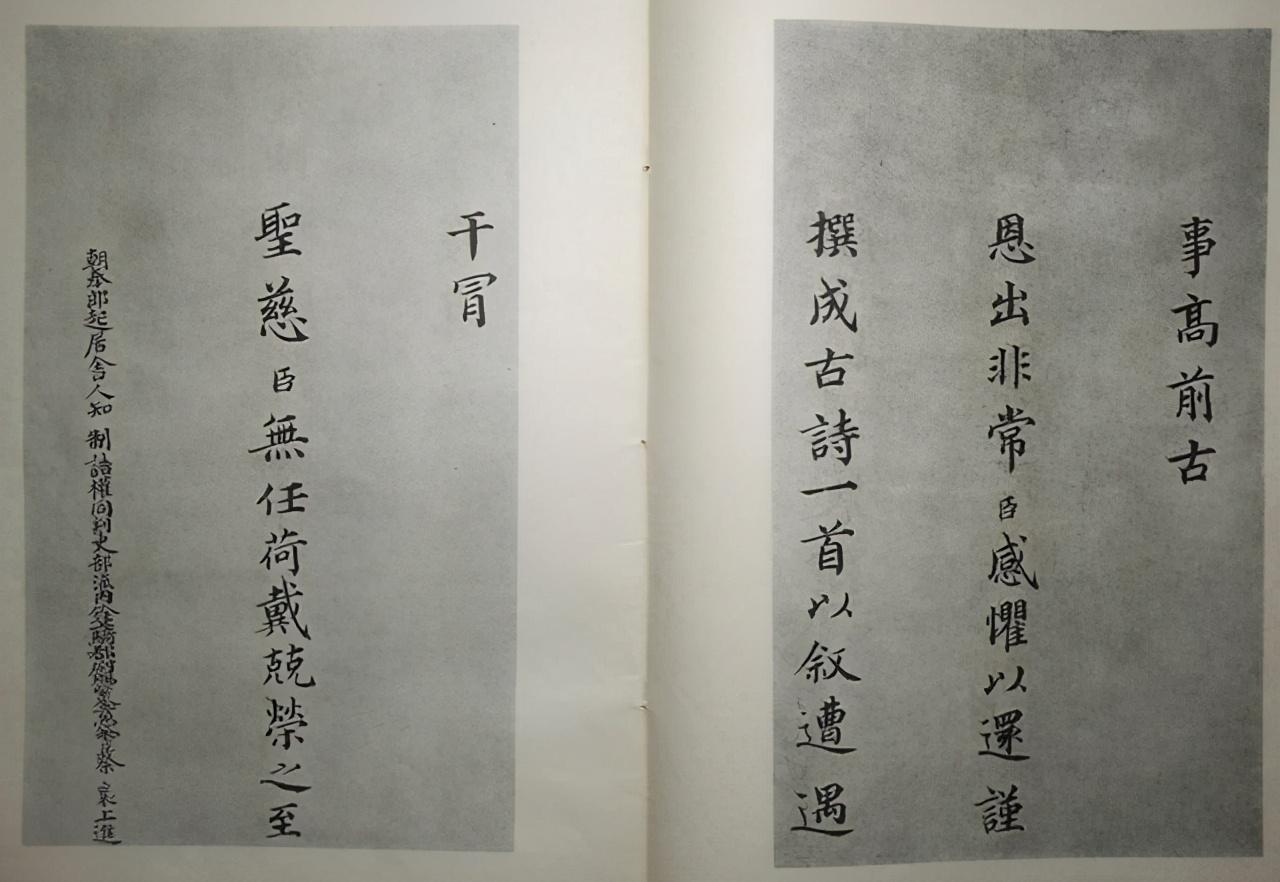 事高前古
恩出非常臣感懼以還謹
撰成古詩一首以叙遭遇
干冒
聖慈臣無任荷戴兢榮之至
朝奉郎起居舍人知 制誥權同判吏部流内銓騎都尉 蔡 襄上進